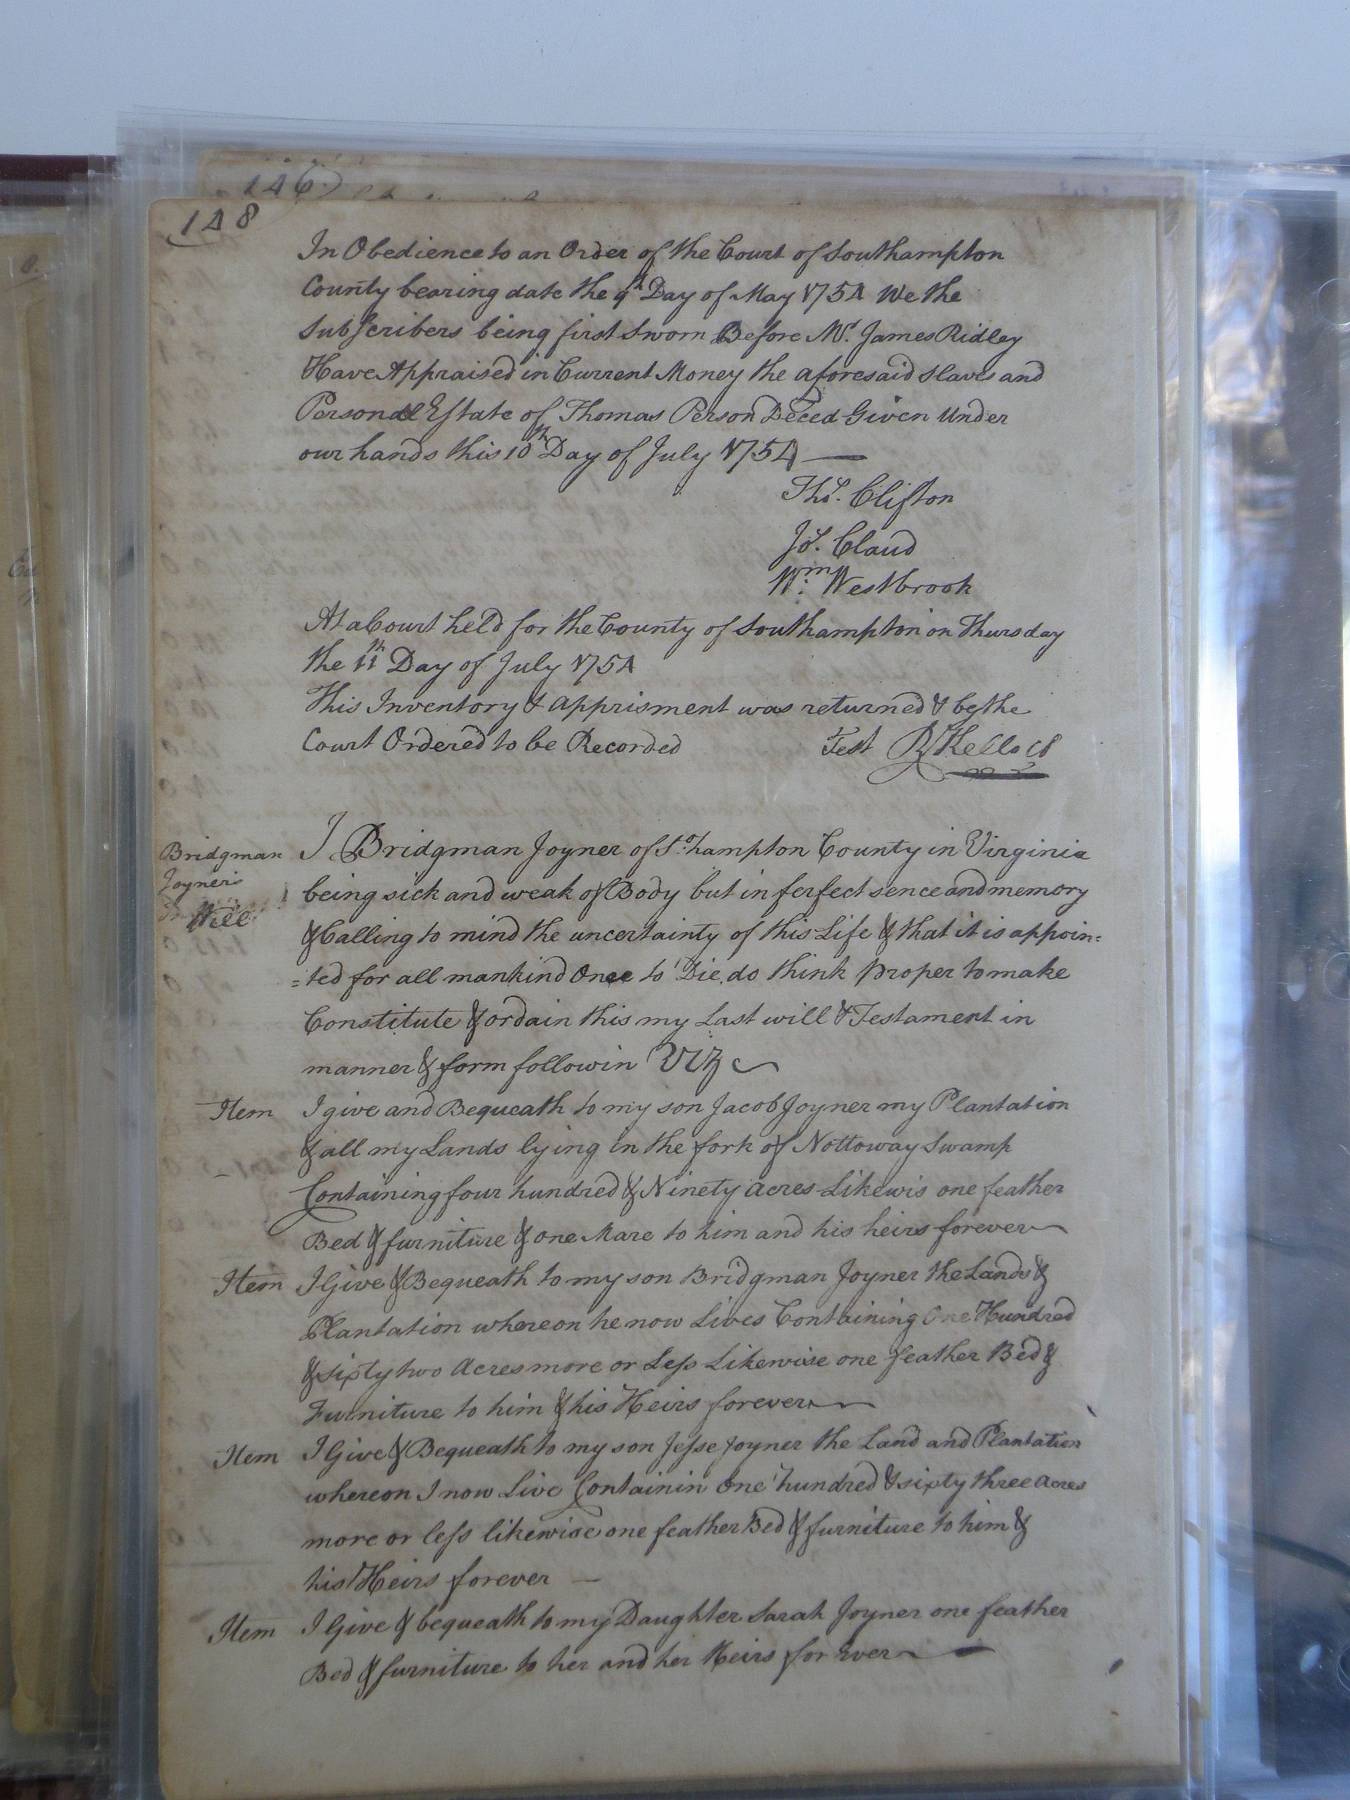 146
148
In Obedience to an Order of the Court of Southampton
County bearing date the 9th Day of May 1754 We the
Subscribers being first Sworn Before Mr. James Ridley
Have Appraised in Current Money the aforesaid slaves and
Personal Estate of Thomas Person Deced Given Under
our hands this 10th Day of July 1754
Thos. Clifton
Jos. Claud
Wm. Westbrook
At a Court held for the County of Southampton on Thursday
the 11th Day of July 1754
This Inventory & apprisment was returned & by the
Court Ordered to be Recorded Test R Kello Cl
Bridgman
Joyner's
Will
I Bridgman Joyner of So. hampton County in Virginia
being sick and weak of Body but in ferfect sence and memory
& Calling to mind the uncertainty of this Life & that it is appoin=
=ted for all mankind Once to Die, do think proper to make
Constitute & ordain this my Last will & Testament in
manner & form followin Viz
Item I give and Bequeath to my son Jacob Joyner my Plantation
& all my Lands lying in the fork of Nottoway Swamp
Containing four hundred & Ninety acres Likewis one feather
Bed & furniture & one Mare to him and his heirs forever
Item I Give & Bequeath to my son Bridgman Joyner the Lands &
Plantation whereon he now Lives Containing One Hundred
& sixty two Acres more or Less Likewise one feather Bed &
Furniture to him & his Heirs forever
Item I Give & Bequeath to my son Jesse Joyner the Land and Plantation
whereon I now Live Containin One hundred & sixty three acres
more or less likewise one feather Bed & furniture to him &
his Heirs forever
Item I Give & bequeath to my Daughter Sarah Joyner one feather
Bed & furniture to her and her Heirs for Ever